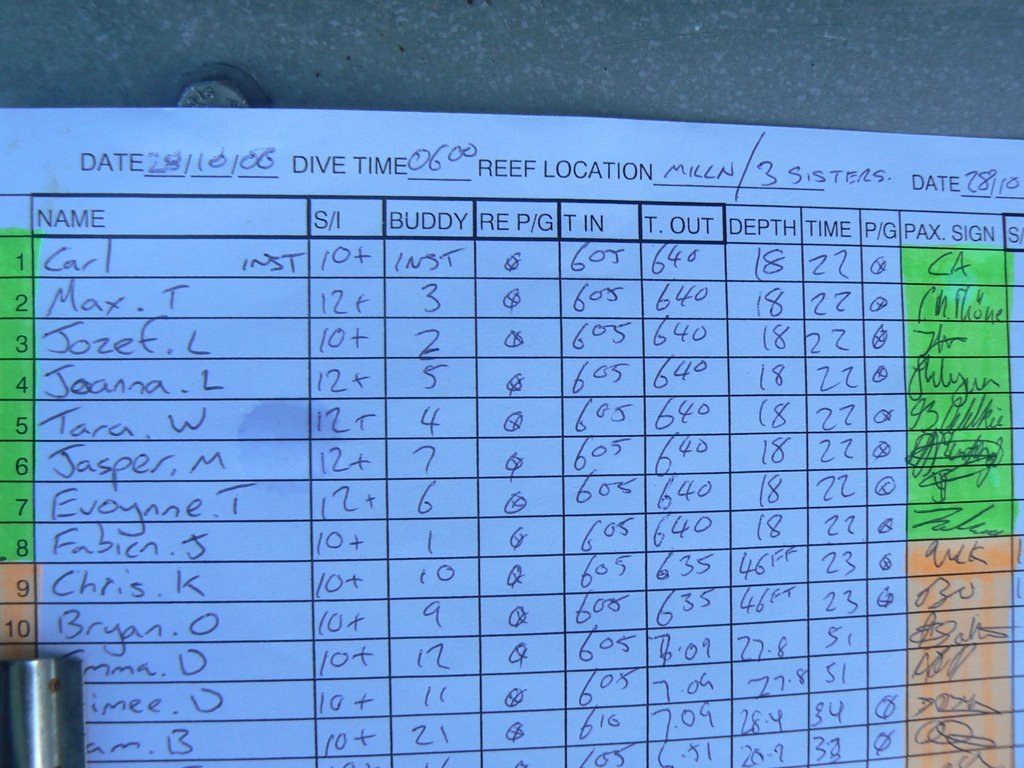 DATE 28/10/06 DIVE TIME 0600 REEF LOCATION MILLN/3 SISTERS. DATE 28/10
NAME S/I BUDDY RE P/G T IN T. OUT DEPTH TIME P/G PAX. SIGN S/
1 Carl INST 10+ INST Ø 605 640 18 22 Ø CA
2 Max. T 12+ 3 Ø 605 640 18 22 Ø
3 Jozef. L 10+ 2 Ø 605 640 18 22 Ø
4 Joanna. L 12+ 5 Ø 605 640 18 22 Ø
5 Tara. W 12+ 4 Ø 605 640 18 22 Ø
6 Jasper. M 12+ 7 Ø 605 640 18 22 Ø
7 Evoynne. T 12+ 6 Ø 605 640 18 22 Ø
8 Fabien. J 10+ 1 Ø 605 640 18 22 Ø
9 Chris. K 10+ 10 Ø 605 635 46FT 23 Ø
10 Bryan. O 10+ 9 Ø 605 635 46FT 23 Ø
mma. D 10+ 12 Ø 605 7.09 27.8 51
imee. D 10+ 11 Ø 605 7.09 27.8 51
am. B 10+ 21 Ø 610 7.09 28.4 34 Ø